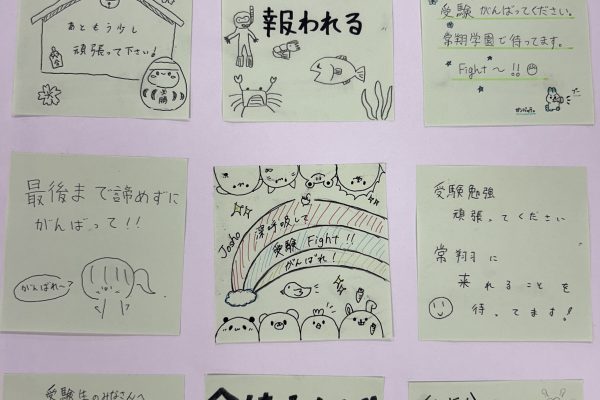 あともう少し
頑張って下さい!
必勝
報われる
受験がんばってください。
常翔学園で待ってます。
Fight〜!!
最後まで諦めずに
がんばって!!
がんばれ〜?
Josho
深呼吸して
受験 Fight!!
がんばれ!
受験勉強
頑張ってください
常翔に
来れることを
待ってます!
受験生のみなさんへ